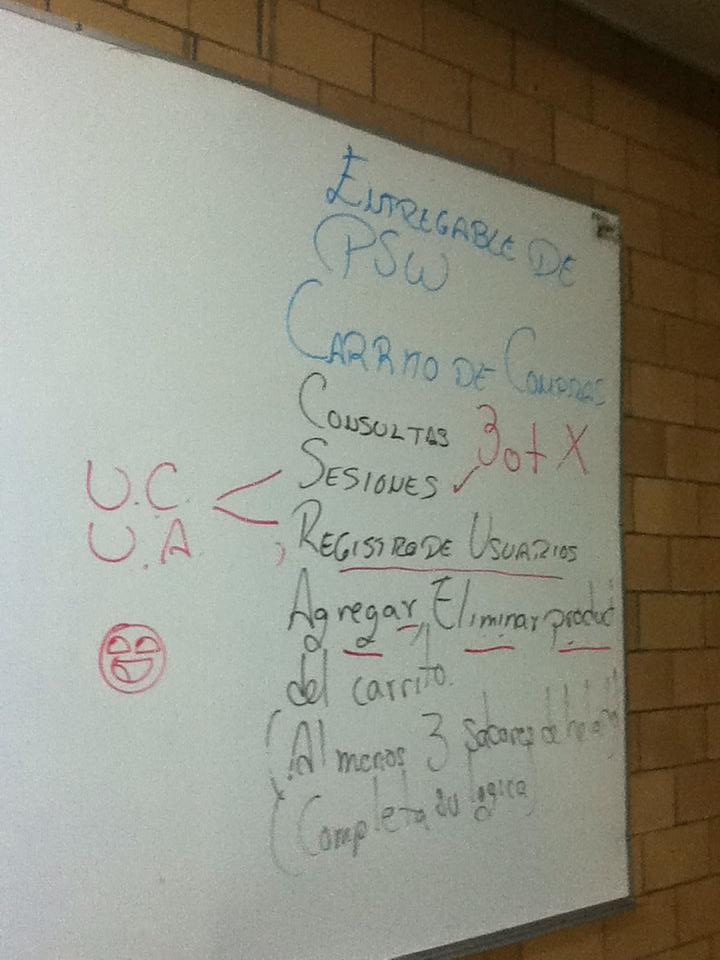 ENTREGABLE DE
PSW
CARRITO DE COMPRAS
CONSULTAS 3 ot X
SESIONES ✓
U.C. <
U.A.
REGISTRO DE USUARIOS
Agregar, Eliminar product
del carrito.
(Al menos 3 sabores de
(Completa su logica)